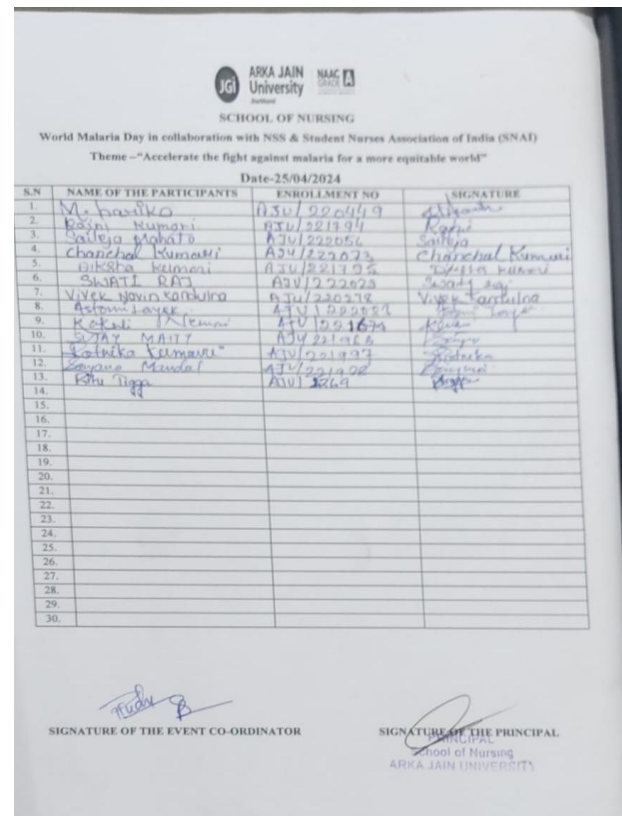 JGi ARKA JAIN University Jharkhand NAAC GRADE A
SCHOOL OF NURSING
World Malaria Day in collaboration with NSS & Student Nurses Association of India (SNAI)
Theme –"Accelerate the fight against malaria for a more equitable world"
Date-25/04/2024
S.N NAME OF THE PARTICIPANTS ENROLLMENT NO SIGNATURE
1. M. AJU/220449
2. Rajni Kumari AJU/221794 Rajni
3. Saileja Mahato AJU/222056 Saileja
4. Chanchal Kumari AJU/222073 Chanchal Kumari
5. Diksha Kumari AJU/221795 Diksha Kumari
6. SWATI RAJ AJU/222023
7. Vivek Navin Kandulna AJU/220278 Vivek Kandulna
8. Astomi Layek
9. AJU/221674
10. SUJAY MAITY AJU/221963
11. Kumari AJU/221997
12. Mandal AJU/221928
13. Tigga AJU/
14.
15.
16.
17.
18.
19.
20.
21.
22.
23.
24.
25.
26.
27.
28.
29.
30.
SIGNATURE OF THE EVENT CO-ORDINATOR SIGNATURE OF THE PRINCIPAL
PRINCIPAL
School of Nursing
ARKA JAIN UNIVERSITY